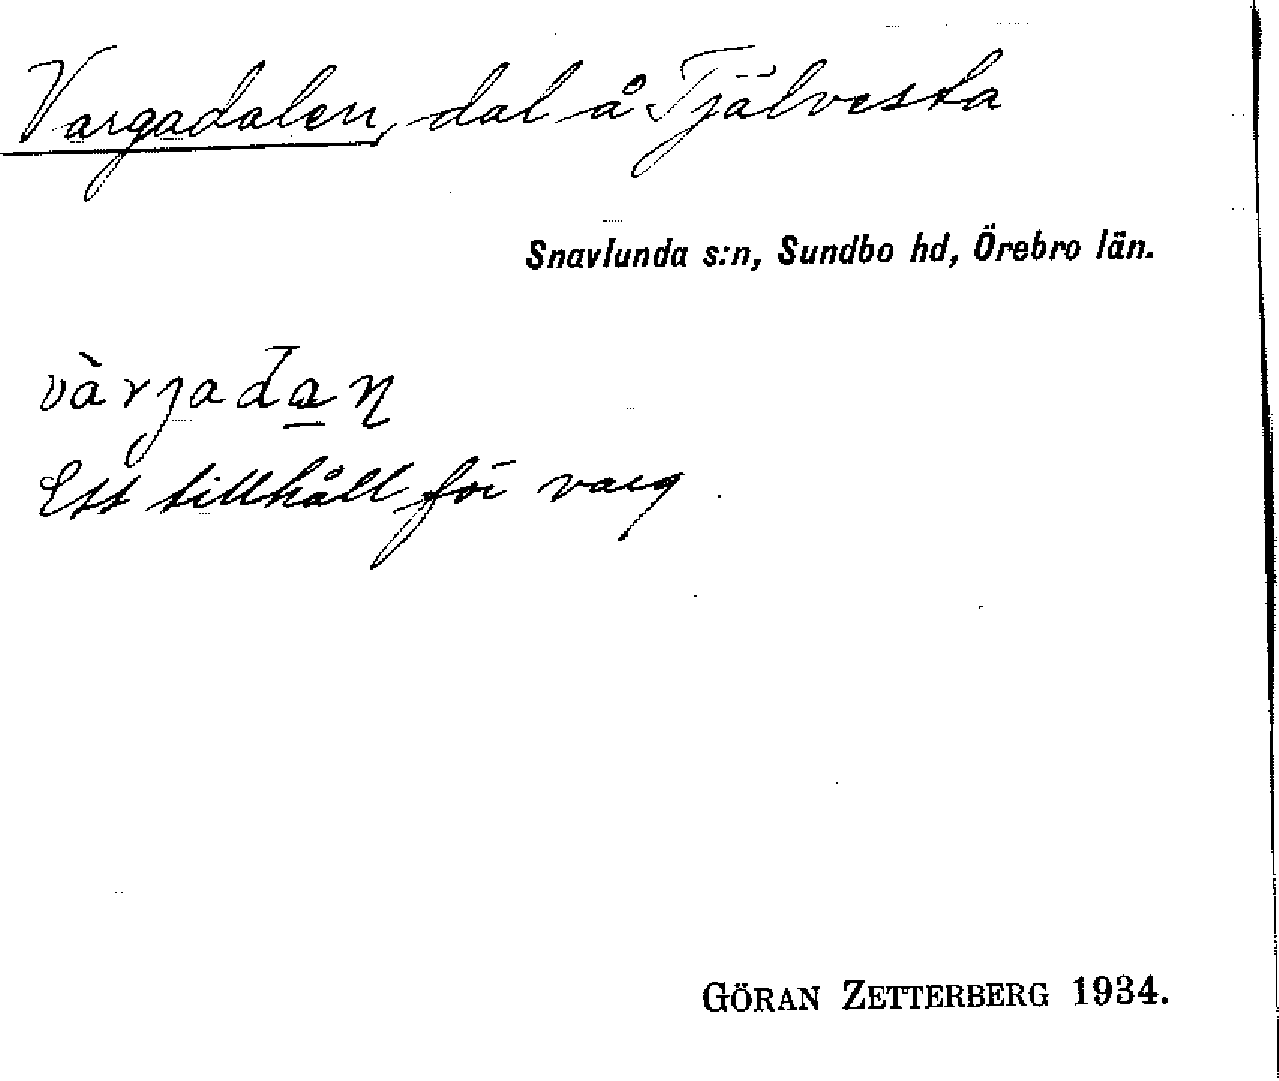 Vargadalen, dal å Tjälvesta
Snavlunda s:n, Sundbo hd, Örebro län.
Ett tillhåll för varg.
GÖRAN ZETTERBERG 1934.